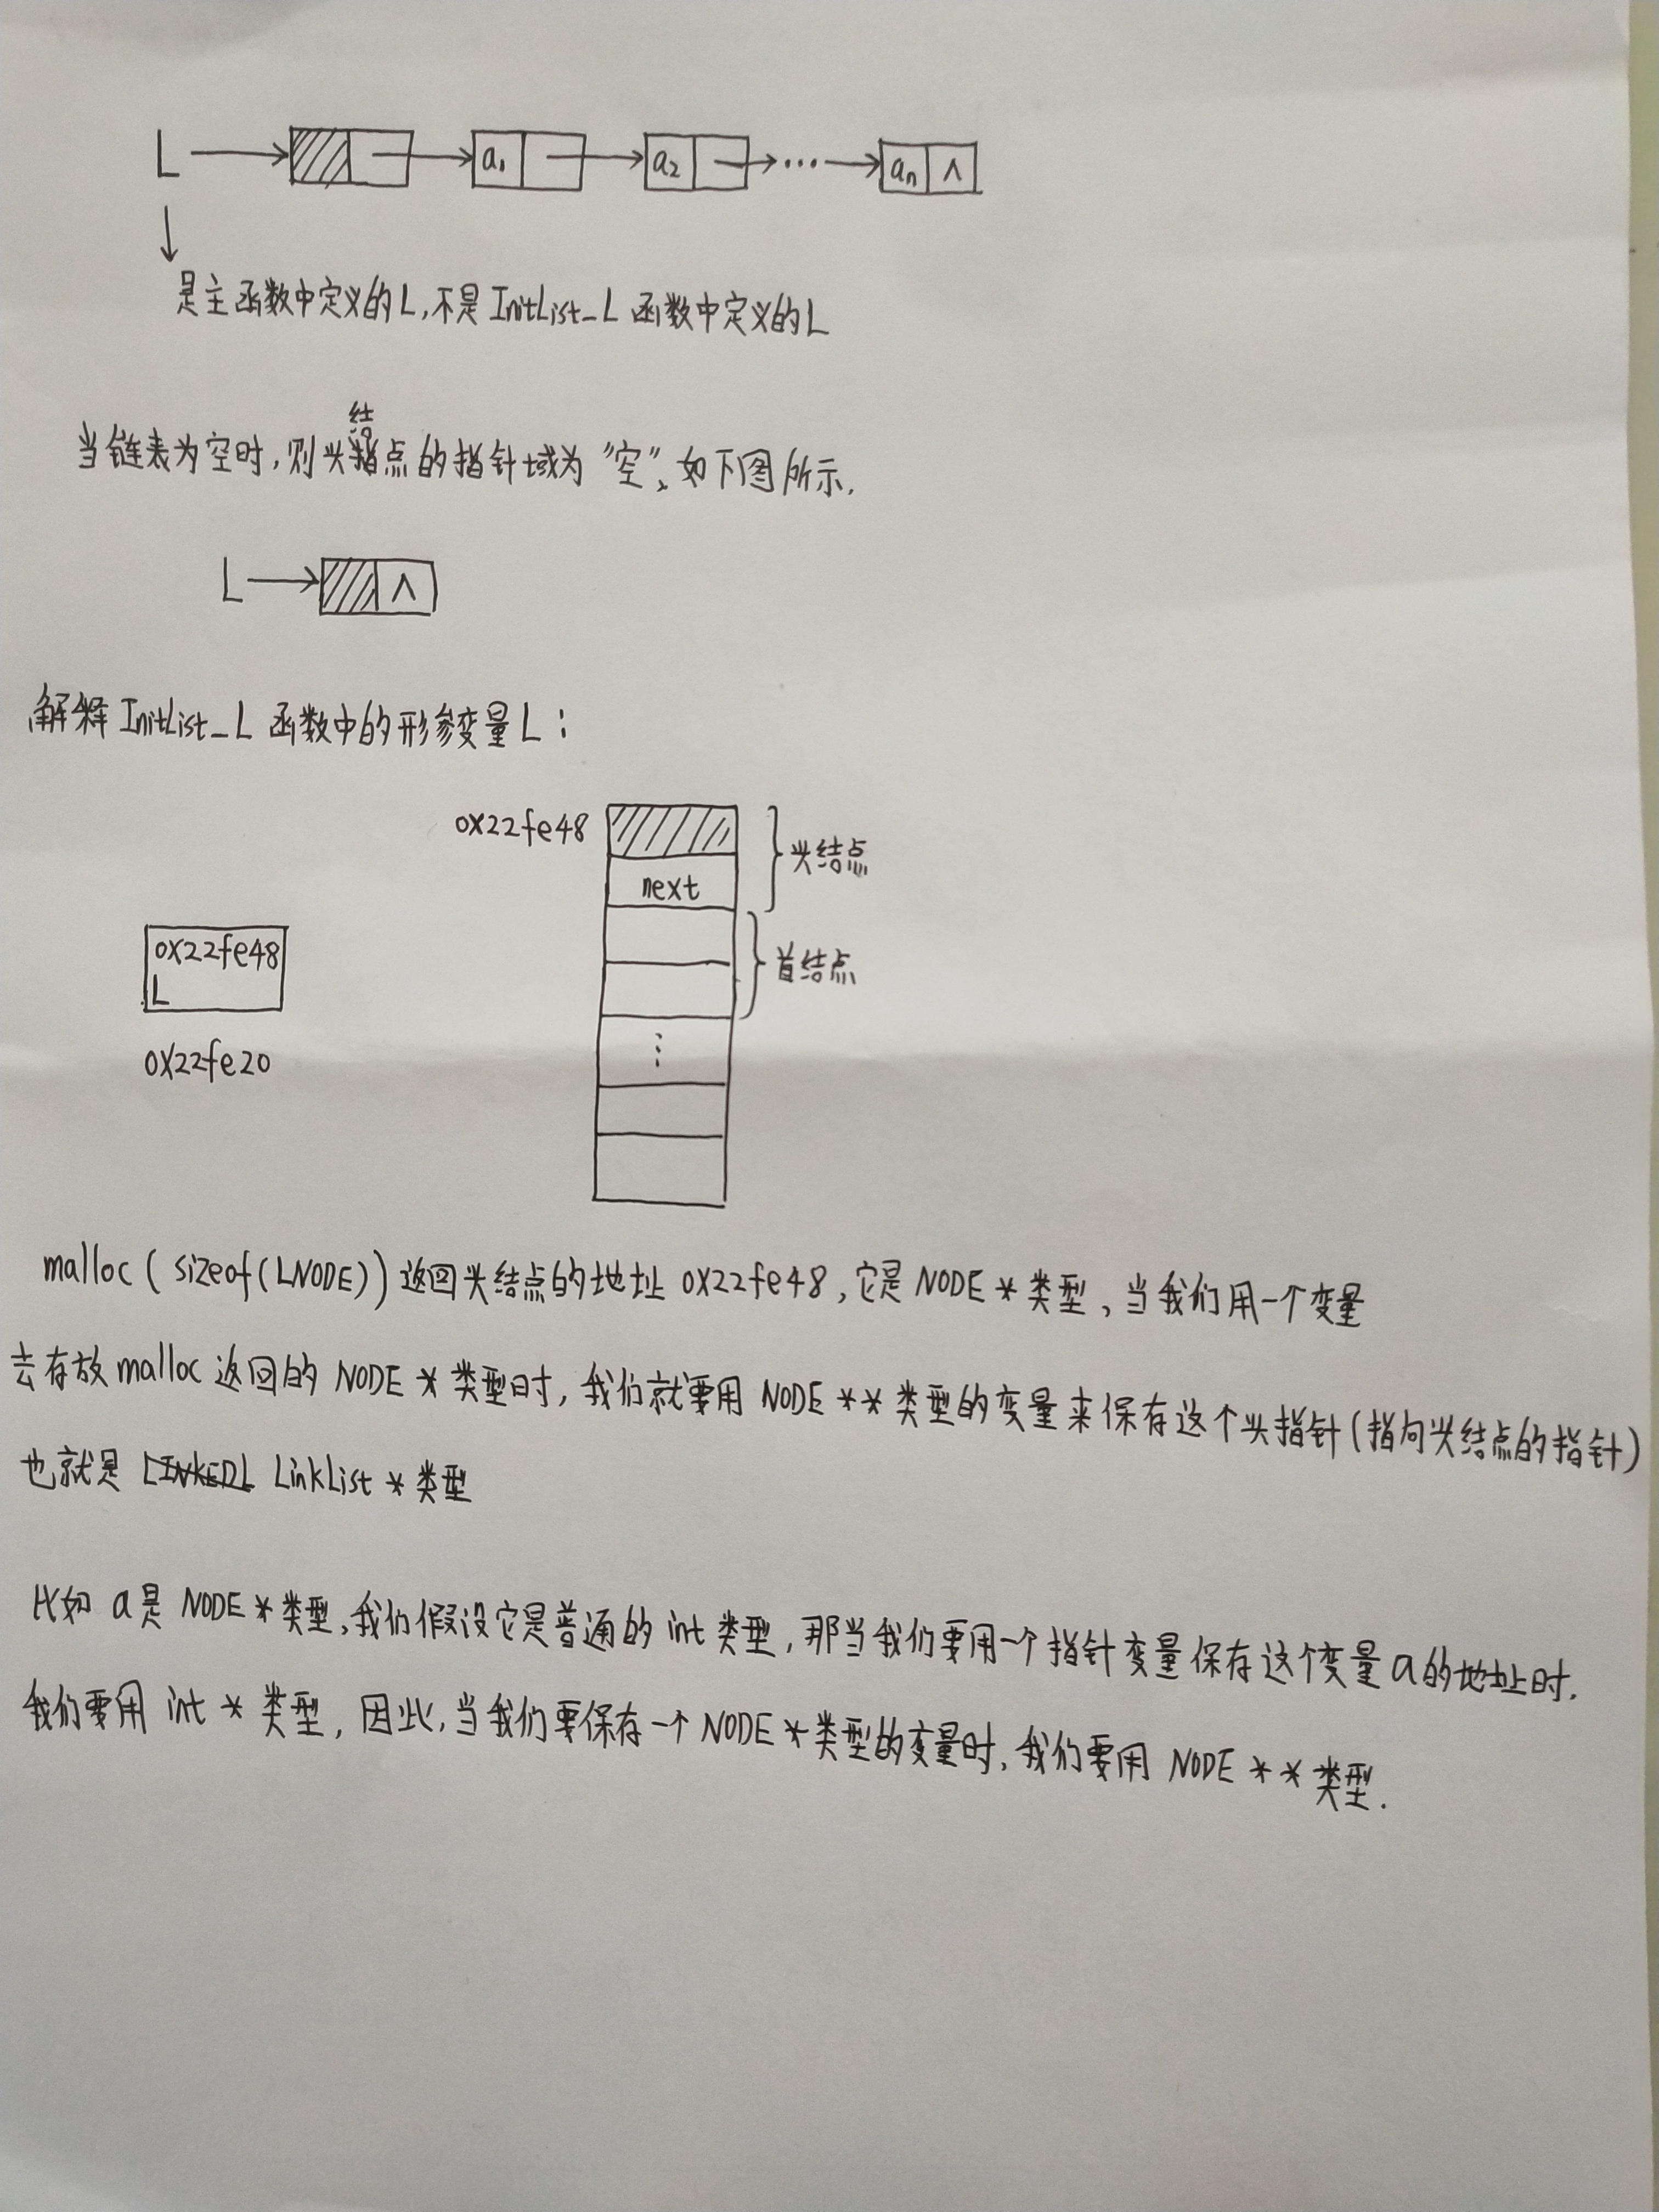 L a₁ a₂ ... aₙ ∧
是主函数中定义的L,不是InitList_L 函数中定义的L
结
当链表为空时,则头点的指针域为“空”,如下图所示.
L ∧
解释InitList_L 函数中的形参变量L:
0x22fe48
头结点
next
0x22fe48
首结点
L
⋮
0x22fe20
malloc(sizeof(LNODE))返回头结点的地址 0x22fe48,它是 NODE * 类型,当我们用一个变量
去存放malloc 返回的 NODE * 类型时,我们就要用 NODE ** 类型的变量来保存这个头指针(指向头结点的指针)
也就是 LINKEDL LinkList * 类型
比如 a是 NODE * 类型,我们假设它是普通的 int 类型,那当我们要用一个指针变量保存这个变量a的地址时.
我们要用 int * 类型,因此,当我们要保存一个 NODE * 类型的变量时,我们要用 NODE ** 类型.